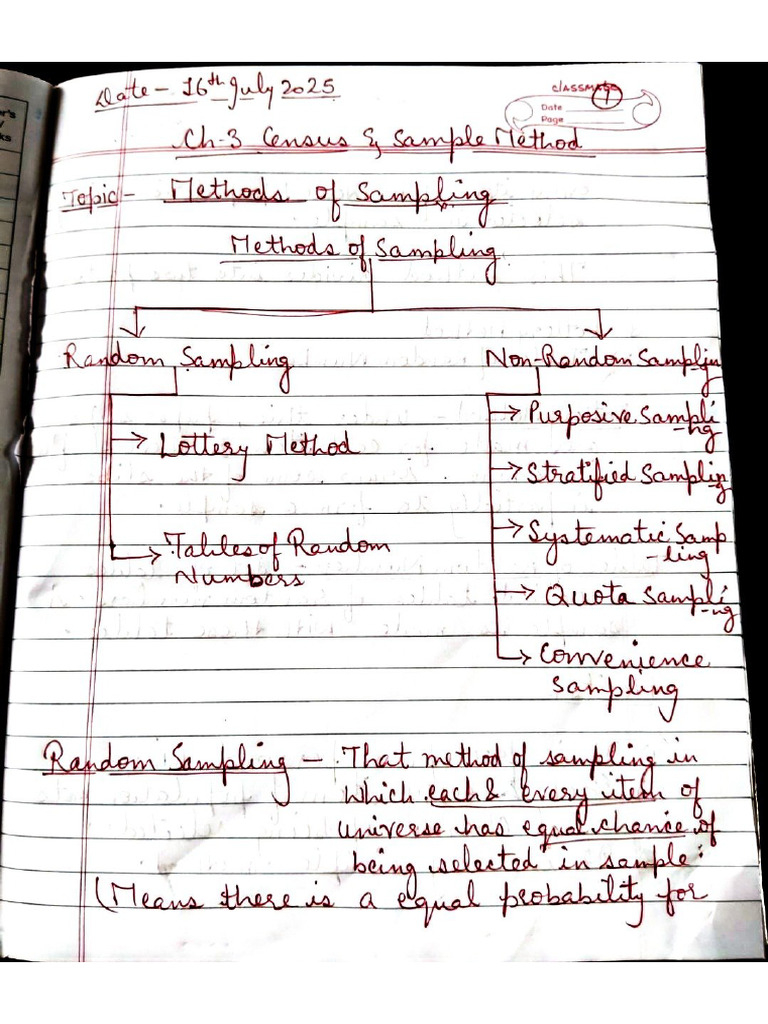 Date - 16th July 2025
classmate
Date
Page
1
Ch-3 Census & Sample Method
Topic - Methods of Sampling
Methods of Sampling
Random Sampling
Non-Random Sampling
→ Lottery Method
→ Tables of Random
Numbers
→ Purposive Sampli
-ng
→ Stratified Sampling
→ Systematic Samp
-ling
→ Quota Sampli
-ng
→ Convenience
Sampling
Random Sampling - That method of sampling in
which each & every item of
universe has equal chance of
being selected in sample.
(Means there is a equal probability for